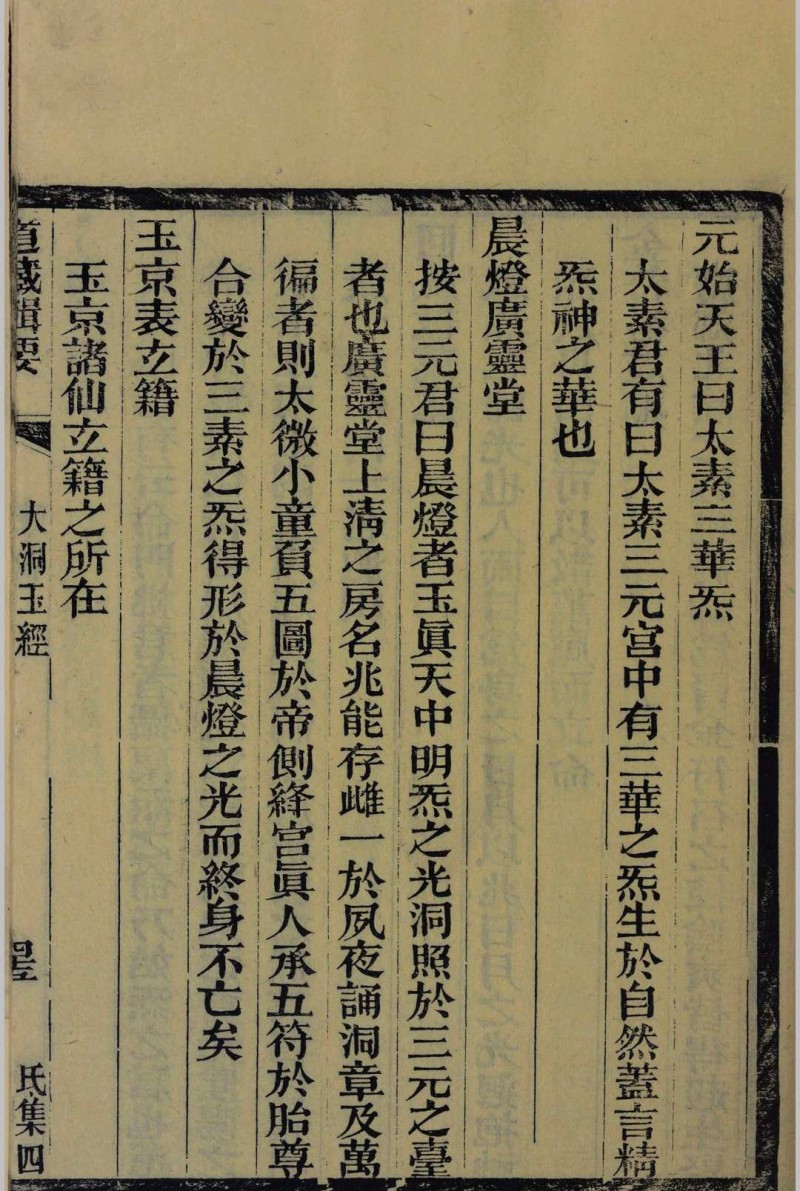 元始天王曰太素三華炁
太素君有曰太素三元宮中有三華之炁生於自然蓋言精
炁神之華也
晨燈廣靈堂
按三元君曰晨燈者玉眞天中明炁之光洞照於三元之臺
者也廣靈堂上淸之房名兆能存雌一於夙夜誦洞章及萬
徧者則太微小童負五圖於帝側絳宮眞人承五符於胎尊
合變於三素之炁得形於晨燈之光而終身不亡矣
玉京表立籍
玉京諸仙立籍之所在
道藏輯要
大洞玉經
氐集四